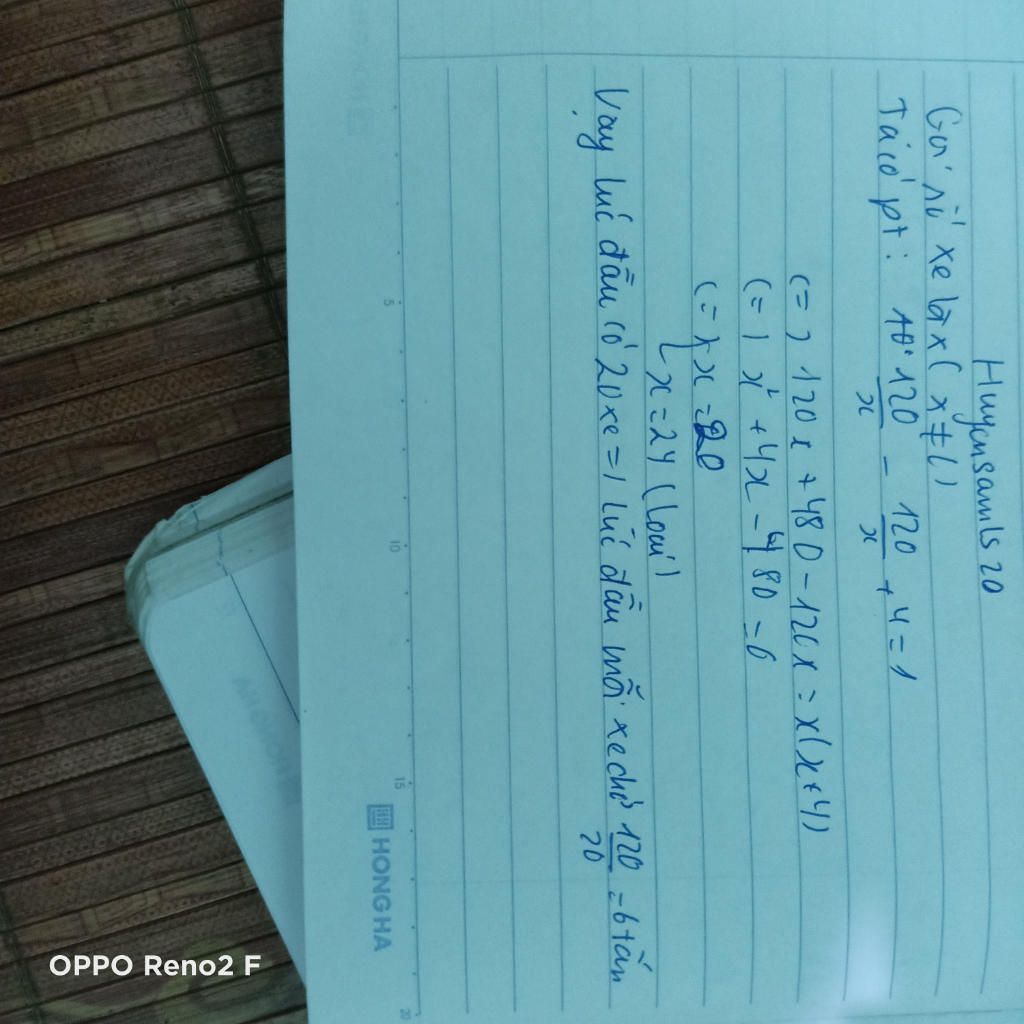 Huyensamls20
Gọi số xe là x ( x≠0)
Ta có pt: 120/x - 120/x+4 = 1
(=) 120x + 480 - 120x = x(x+4)
(=) x² + 4x - 480 = 0
(=) x = 20
x = 24 (loại)
Vậy lúc đầu có 20 xe =) lúc đầu mỗi xe chở 120/20 = 6 tấn
5
10
15
20
HONG HA
OPPO Reno2 F